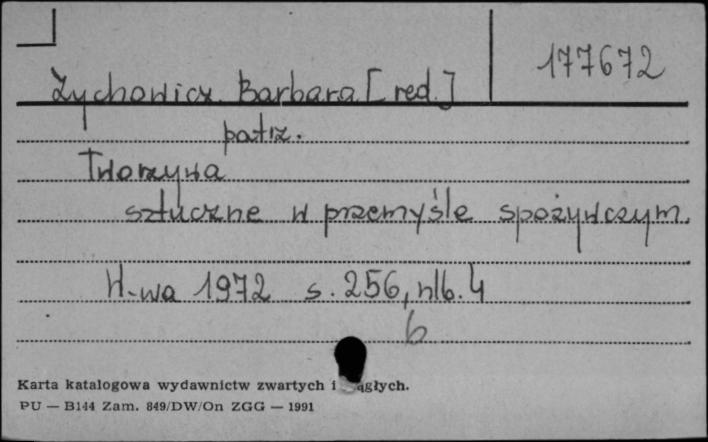 177672
Żychowicz Barbara [red.]
patrz.
Tworzywa
sztuczne w przemyśle spożywczym.
W-wa 1972 s. 256, nlb. 4
6
Karta katalogowa wydawnictw zwartych i ągłych.
PU — B144 Zam. 849/DW/On ZGG — 1991